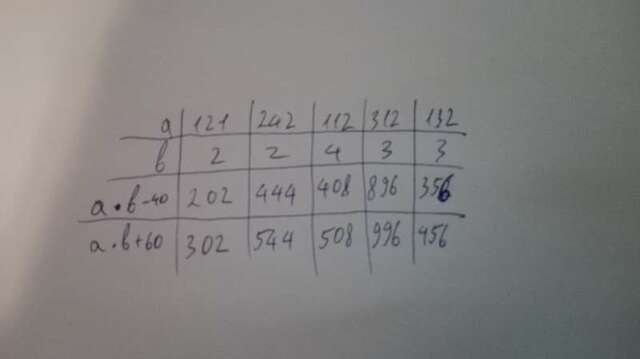 a 121 242 112 312 132
в 2 2 4 3 3
a·в-40 202 444 408 896 356
a·в+60 302 544 508 996 456